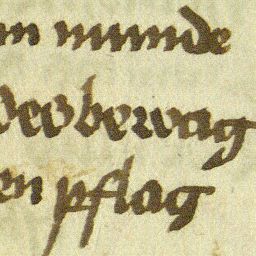 munde
bewag
en pflag